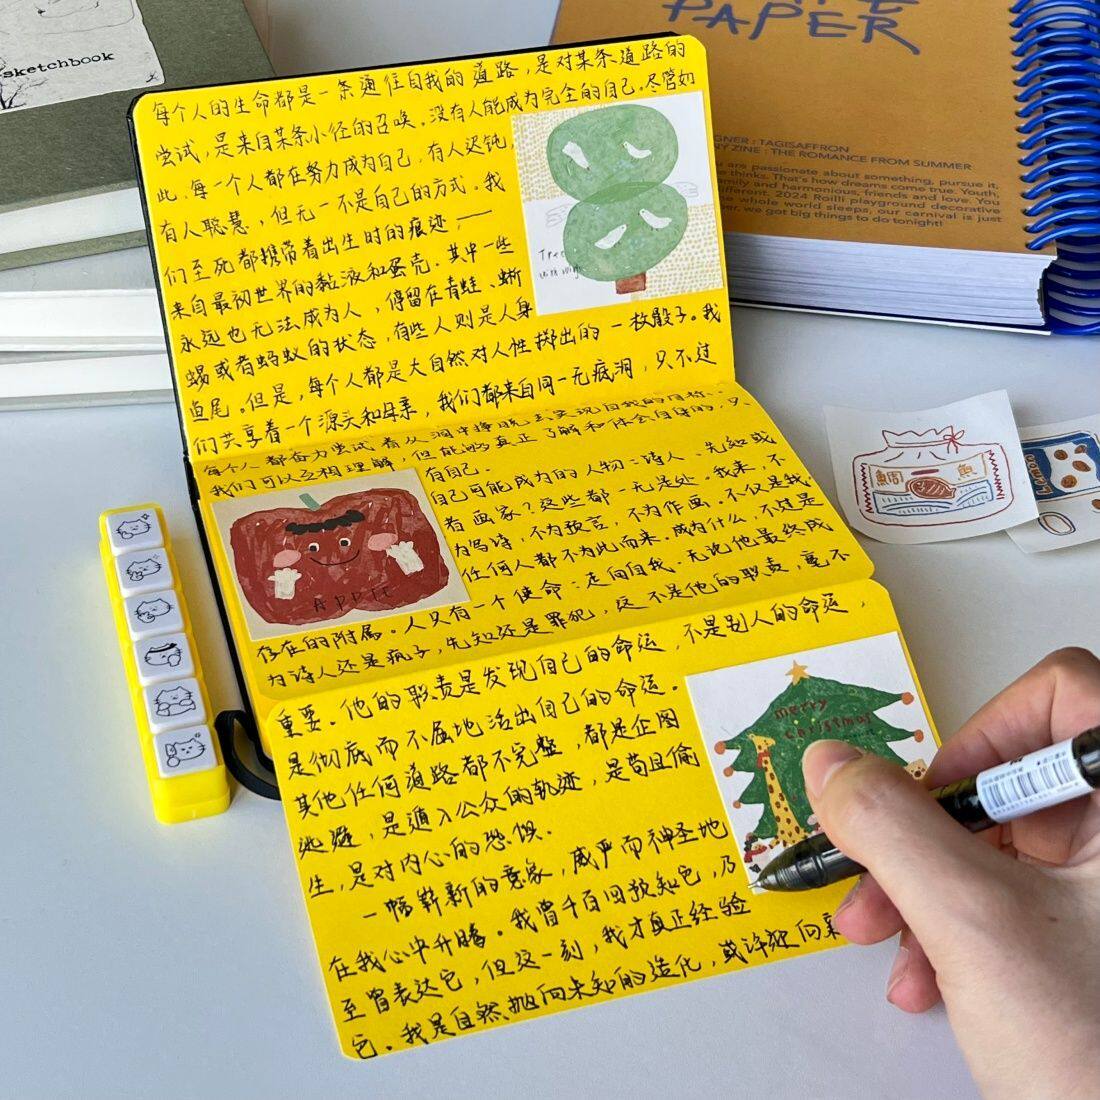 sketchbook
PAPER
GNER : TAGISAFFRON
NY ZINE : THE ROMANCE FROM SUMMER
ou are passionate about something, pursue it,
think. That's how dreams come true. Youth,
amily and harmonious, friends and love. You
ifferent. 2024 Roilli playground decorative
whole world sleeps, our carnival is just
er. we got big things to do tonight!
每个人的生命都是一条通往自我的道路，是对某条道路的
尝试，是来自某条小径的召唤。没有人能成为完全的自己。尽管如
此，每一个人都在努力成为自己，有人迟钝，
有人聪慧，但无一不是自己的方式。我
们至死都携带着出生时的痕迹，——
来自最初世界的黏液和蛋壳。其中一些
永远也无法成为人，停留在青蛙、蜥
蜴或者蚂蚁的状态，有些人则是人身
鱼尾。但是，每个人都是大自然对人性掷出的一枚骰子。我
们共享着一个源头和母亲，我们都来自同一无底洞，只不过
每个人都奋力尝试着从洞中挣脱去实现自我的目标。
我们可以互相理解，但能够真正了解和体会自身的，只
有自己。
自己可能成为的人物：诗人、先知或
者画家？这些都一无法处。我来，不
为写诗，不为预言，不为作画。不仅是我，
任何人都不为此而来。成为什么，不过是
存在的附属。人只有一个使命：走向自我。无论他最终成
为诗人还是疯子，先知还是罪犯，这不是他的职责，毫不
重要。他的职责是发现自己的命运，不是别人的命运，
是彻底而不屈地活出自己的命运。
其他任何道路都不完整，都是企图
逃避，是遁入公众的轨迹，是苟且偷
生，是对内心的恐惧。
一幅崭新的意象，威严而神圣地
在我心中升腾。我曾千百回预知它，乃
至曾表达它，但这一刻，我才真正经验
它。我是自然抛向未知的造化，或许迎向来
Tree
APPLE
merry
christmas